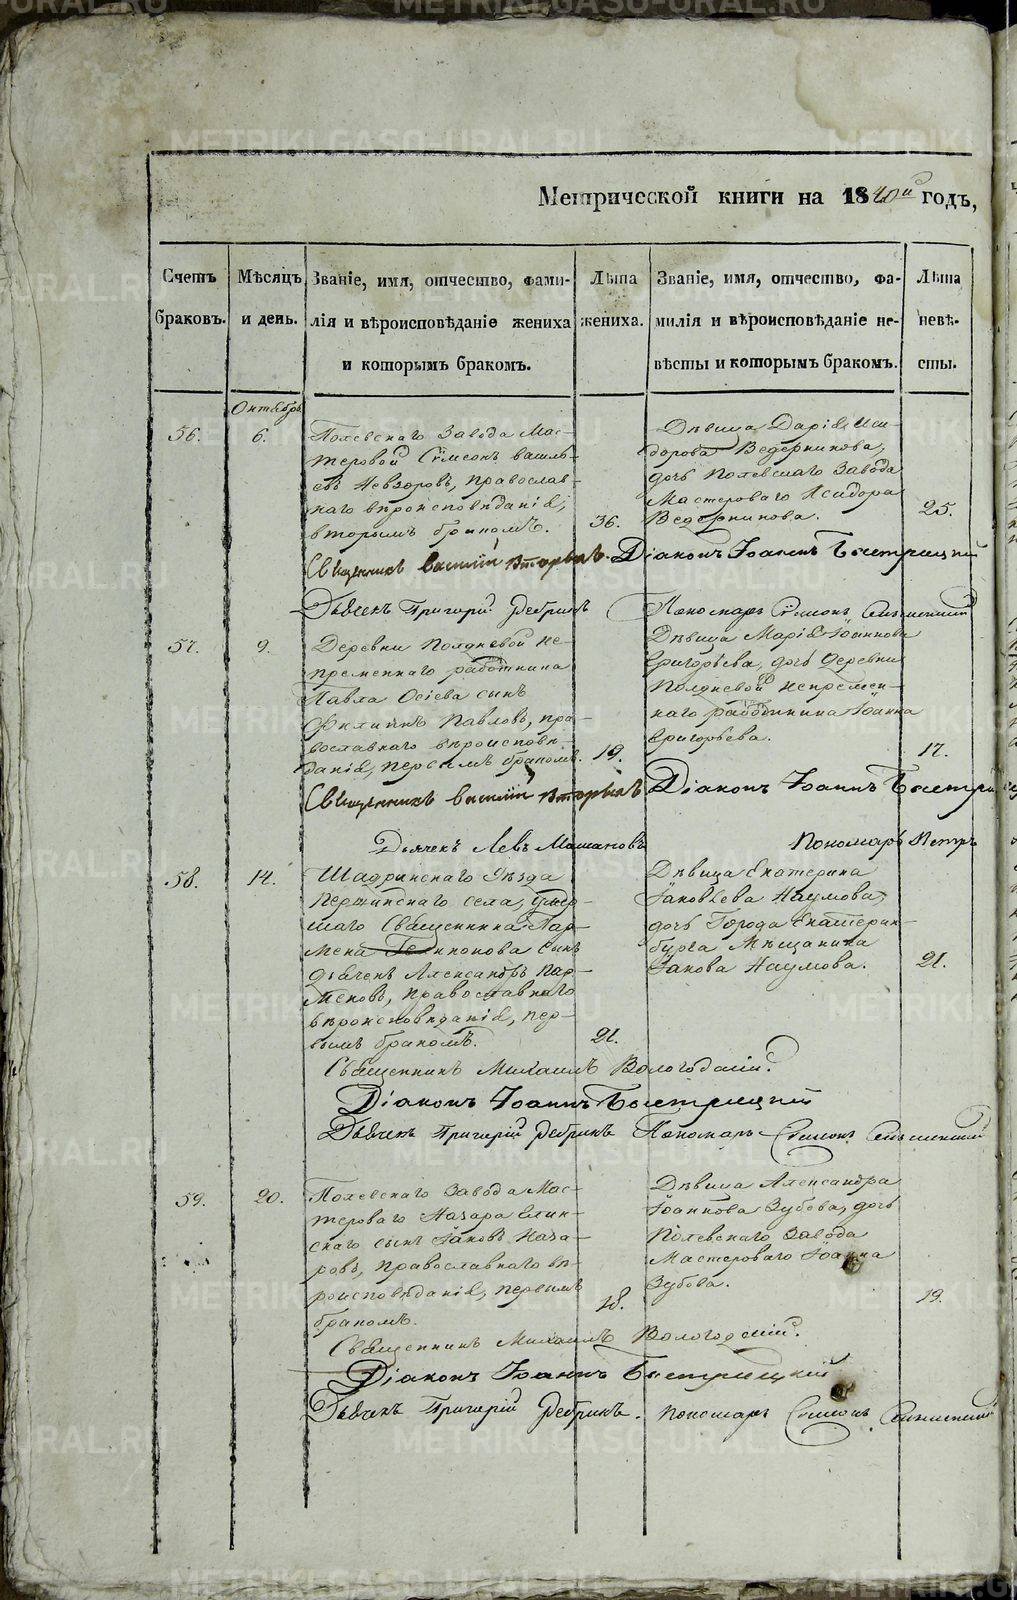 Метрической книги на 1840й годъ,
Счетъ браковъ.
Мѣсяцъ и день.
Званіе, имя, отчество, фами-
лія и вѣроисповѣданіе жениха
и которымъ бракомъ.
Лѣта
жениха.
Званіе, имя, отчество, фа-
милія и вѣроисповѣданіе не-
вѣсты и которымъ бракомъ.
Лѣта
невѣ-
сты.
Октябрь
56.
6.
Полевскаго Завода Мас-
теровой Сѵмеонъ Василь-
евъ Невзоровъ, православ-
наго вѣроисповѣданія,
вторымъ бракомъ.
36.
Дѣвица Дарія Иси-
дорова Ведерникова,
дочь Полевскаго Завода
Мастероваго Исидора
Ведерникова.
25.
Священникъ Василій Діаконъ Іоаннъ Быстрицкій
Дьячекъ Григорій Пономарь Сѵмеонъ
57.
9.
Деревни Полдневой Не-
премѣннаго работника
Павла Осіева сынъ
Филиппъ Павловъ, пра-
вославнаго вѣроисповѣ-
данія, первымъ бракомъ.
19.
Дѣвица Марія Іоаннова
Григорьева, дочь деревни
Полдневой Непремѣн-
наго работника Іоанна
Григорьева.
17.
Священникъ Василій Діаконъ Іоаннъ
Дьячекъ Левъ Пономарь Петръ
58.
14.
Шадринскаго Уѣзда
Першинскаго села, умер-
шаго Священника Пар-
мена сынъ
дьячекъ Александръ Пар-
меновъ, православнаго
вѣроисповѣданія, пер-
вымъ бракомъ.
21.
Дѣвица Екатерина
Іаковлева Наумова,
дочь Города Екатерин-
бурга Мѣщанина
Іакова Наумова.
21.
Священникъ Михаилъ Вологодскій.
Діаконъ Іоаннъ Быстрицкій
Дьячекъ Григорій Пономарь Сѵмеонъ
59.
20.
Полевскаго Завода Мас-
тероваго Назара
сынъ Іаковъ Наза-
ровъ, православнаго вѣ-
роисповѣданія, первымъ
бракомъ.
18.
Дѣвица Александра
Іоаннова Зубова, дочь
Полевскаго Завода
Мастероваго Іоанна
Зубова.
19.
Священникъ Михаилъ Вологодскій.
Діаконъ Іоаннъ Быстрицкій
Дьячекъ Григорій пономарь Сѵмеонъ